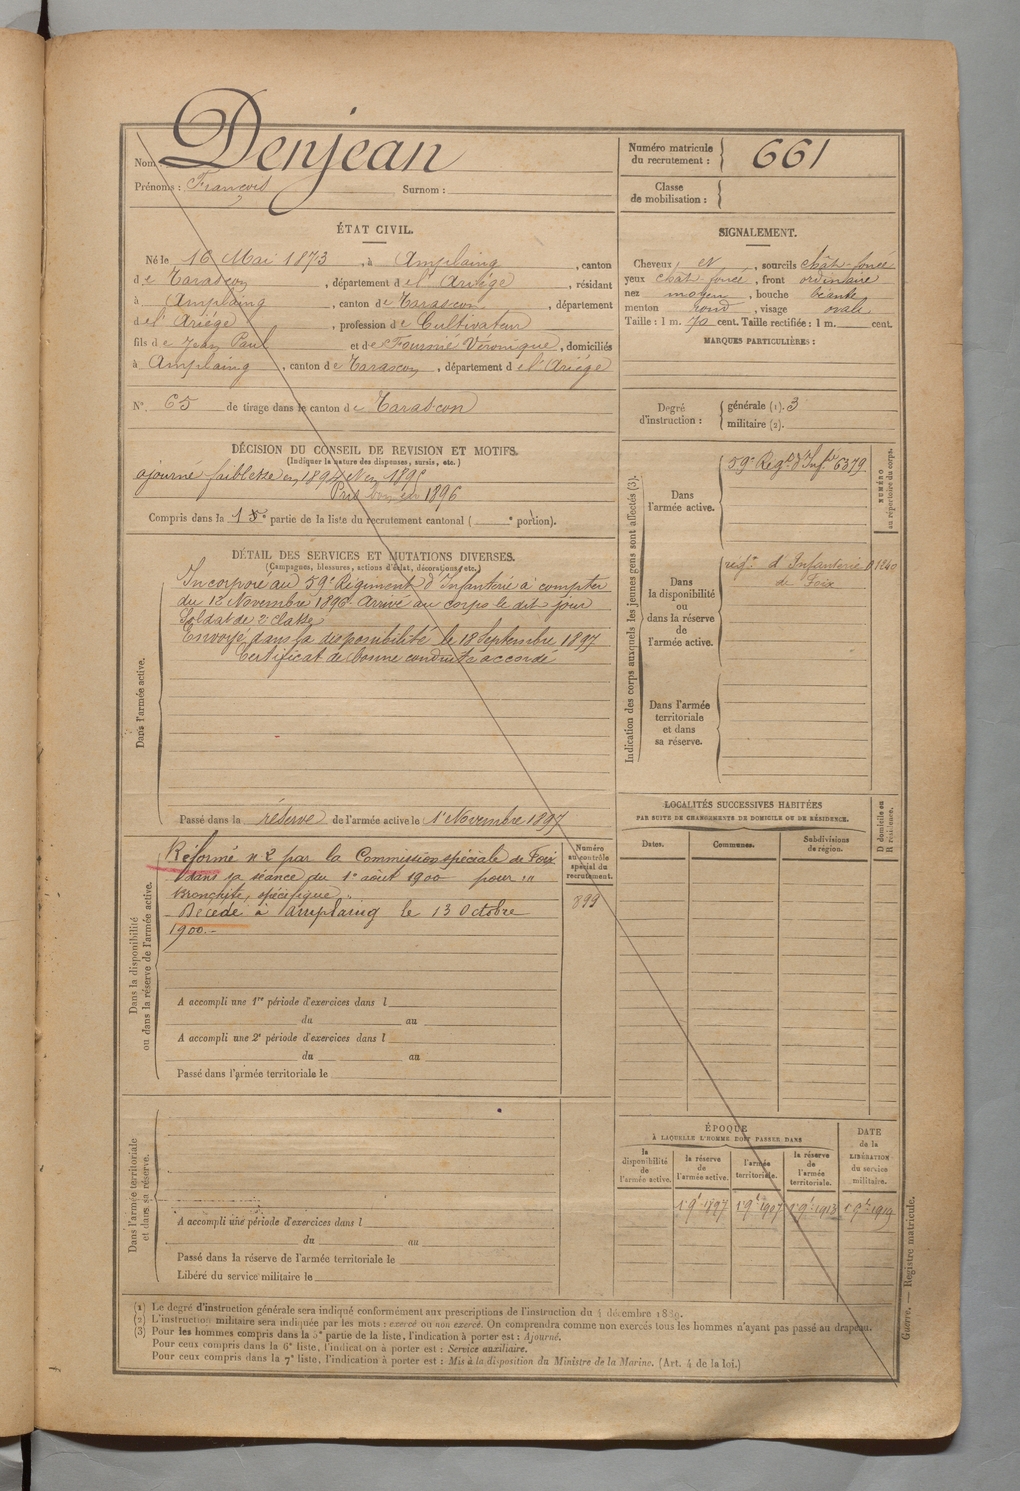 Nom : Denjean
Prénoms : François Surnom :
Numéro matricule du recrutement : 661
Classe de mobilisation :
ÉTAT CIVIL.
Né le 16 Mai 1873, à Amplaing, canton
de Tarascon, département de l'Ariège, résidant
à Amplaing, canton de Tarascon, département
de l'Ariége, profession de Cultivateur
fils de Jean Paul et de Fournié Véronique, domiciliés
à Amplaing, canton de Tarascon, département de l'Ariége
N° 65 de tirage dans le canton de Tarascon
SIGNALEMENT.
Cheveux et, sourcils chât-foncé
yeux chât-foncé, front ordinaire
nez moyen, bouche béante
menton rond, visage ovale
Taille : 1 m. 70 cent. Taille rectifiée : 1 m. cent.
MARQUES PARTICULIÈRES :
Degré d'instruction : générale (1). 3
militaire (2).
DÉCISION DU CONSEIL DE REVISION ET MOTIFS.
(Indiquer la nature des dispenses, sursis, etc.)
ajourné faiblesse en 1894 et en 1895
Pris bon en 1896
Compris dans la 1e partie de la liste du recrutement cantonal ( e portion).
DÉTAIL DES SERVICES ET MUTATIONS DIVERSES.
(Campagnes, blessures, actions d'éclat, décorations, etc.)
Dans l'armée active.
Incorporé au 59e Régiment d'Infanterie à compter
du 12 Novembre 1896. Arrivé au corps le dit jour
Soldat de 2e classe
Envoyé dans la disponibilité le 18 Septembre 1897
Certificat de bonne conduite accordé
Passé dans la réserve de l'armée active le 1er Novembre 1897
Dans la disponibilité
ou dans la réserve de l'armée active.
Réformé n° 2 par la Commission spéciale de Foix
dans sa séance du 1er août 1900 pour "
Bronchite spécifique "
Décédé à Amplaing le 13 Octobre
1900.-
Numéro au contrôle spécial du recrutement.
899
A accompli une 1re période d'exercices dans l
du au
A accompli une 2e période d'exercices dans l
du au
Passé dans l'armée territoriale le
Dans l'armée territoriale
et dans sa réserve.
A accompli une période d'exercices dans l
du au
Passé dans la réserve de l'armée territoriale le
Libéré du service militaire le
Indication des corps auxquels les jeunes gens sont affectés (3).
NUMÉRO au répertoire du corps.
Dans l'armée active.
59e Régt d'Infie 6379
Dans la disponibilité ou dans la réserve de l'armée active.
regt d'Infanterie 01240
de Foix
Dans l'armée territoriale et dans sa réserve.
LOCALITÉS SUCCESSIVES HABITÉES
PAR SUITE DE CHANGEMENTS DE DOMICILE OU DE RÉSIDENCE.
Dates. Communes. Subdivisions de région. D domicile ou R résidence.
ÉPOQUE
À LAQUELLE L'HOMME DOIT PASSER DANS
la disponibilité de l'armée active.
la réserve de l'armée active.
l'armée territoriale.
la réserve de l'armée territoriale.
DATE de la LIBÉRATION du service militaire.
1er 9bre 1897 1er 9bre 1907 1er 9bre 1913 1er 9bre 1919
(1) Le degré d'instruction générale sera indiqué conformément aux prescriptions de l'instruction du 4 décembre 1889.
(2) L'instruction militaire sera indiquée par les mots : exercé ou non exercé. On comprendra comme non exercés tous les hommes n'ayant pas passé au drapeau.
(3) Pour les hommes compris dans la 5e partie de la liste, l'indication à porter est : Ajourné.
Pour ceux compris dans la 6e liste, l'indication à porter est : Service auxiliaire.
Pour ceux compris dans la 7e liste, l'indication à porter est : Mis à la disposition du Ministre de la Marine. (Art. 4 de la loi.)
Guerre. — Registre matricule.